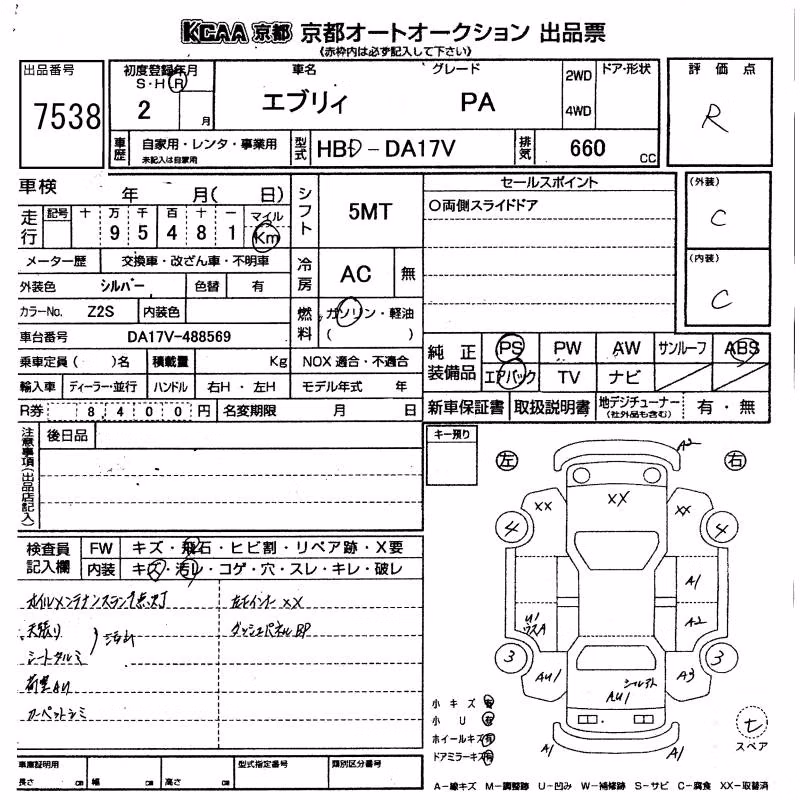 KCAA 京都 京都オートオークション 出品票
(赤枠内は必ず記入して下さい)
出品番号
7538
初度登録年月
S・H・R
2 月
車名
エブリィ
グレード
PA
2WD
4WD
ドア・形状
評価点
R
車歴
自家用・レンタ・事業用
未記入は自家用
型式
HBD-DA17V
排気
660 CC
車検 年 月( 日)
走行
記号 十 万 千 百 十 一 マイル
9 5 4 8 1 Km
メーター歴 交換車・改ざん車・不明車
外装色 シルバー 色替 有
カラーNo. Z2S 内装色
車台番号 DA17V-488569
乗車定員( )名 積載量 Kg NOX 適合・不適合
輸入車 ディーラー・並行 ハンドル 右H・左H モデル年式 年
R券 8,400円 名変期限 月 日
シフト
5MT
冷房
AC 無
燃料
ガソリン・軽油
( )
セールスポイント
○両側スライドドア
(外装)
C
(内装)
C
純正装備品
PS PW AW サンルーフ ABS
エアバック TV ナビ
新車保証書 取扱説明書 地デジチューナー 有・無
(社外品も含む)
注意事項(出品店記入)
後日品
キー預り
左
右
A2
XX
XX
XX
4
4
A1
A2
U1
ウスA
3
3
AU1
A3
AU1
A1
A1
検査員記入欄
FW キズ・飛石・ヒビ割・リペア跡・X要
内装 キズ・汚レ・コゲ・穴・スレ・キレ・破レ
オイルメンテナンスランプ点灯
天張り
シートタルミ
荷室AU
カーペットシミ
ダッシュパネルBP
小キズ 有
小U 有
ホイールキズ 有
ドアミラーキズ 有
セ
スペア
車庫証明用
長さ cm 幅 cm 高さ cm
型式指定番号
類別区分番号
A-線キズ M-調整跡 U-凹み W-補修跡 S-サビ C-腐食 XX-取替済